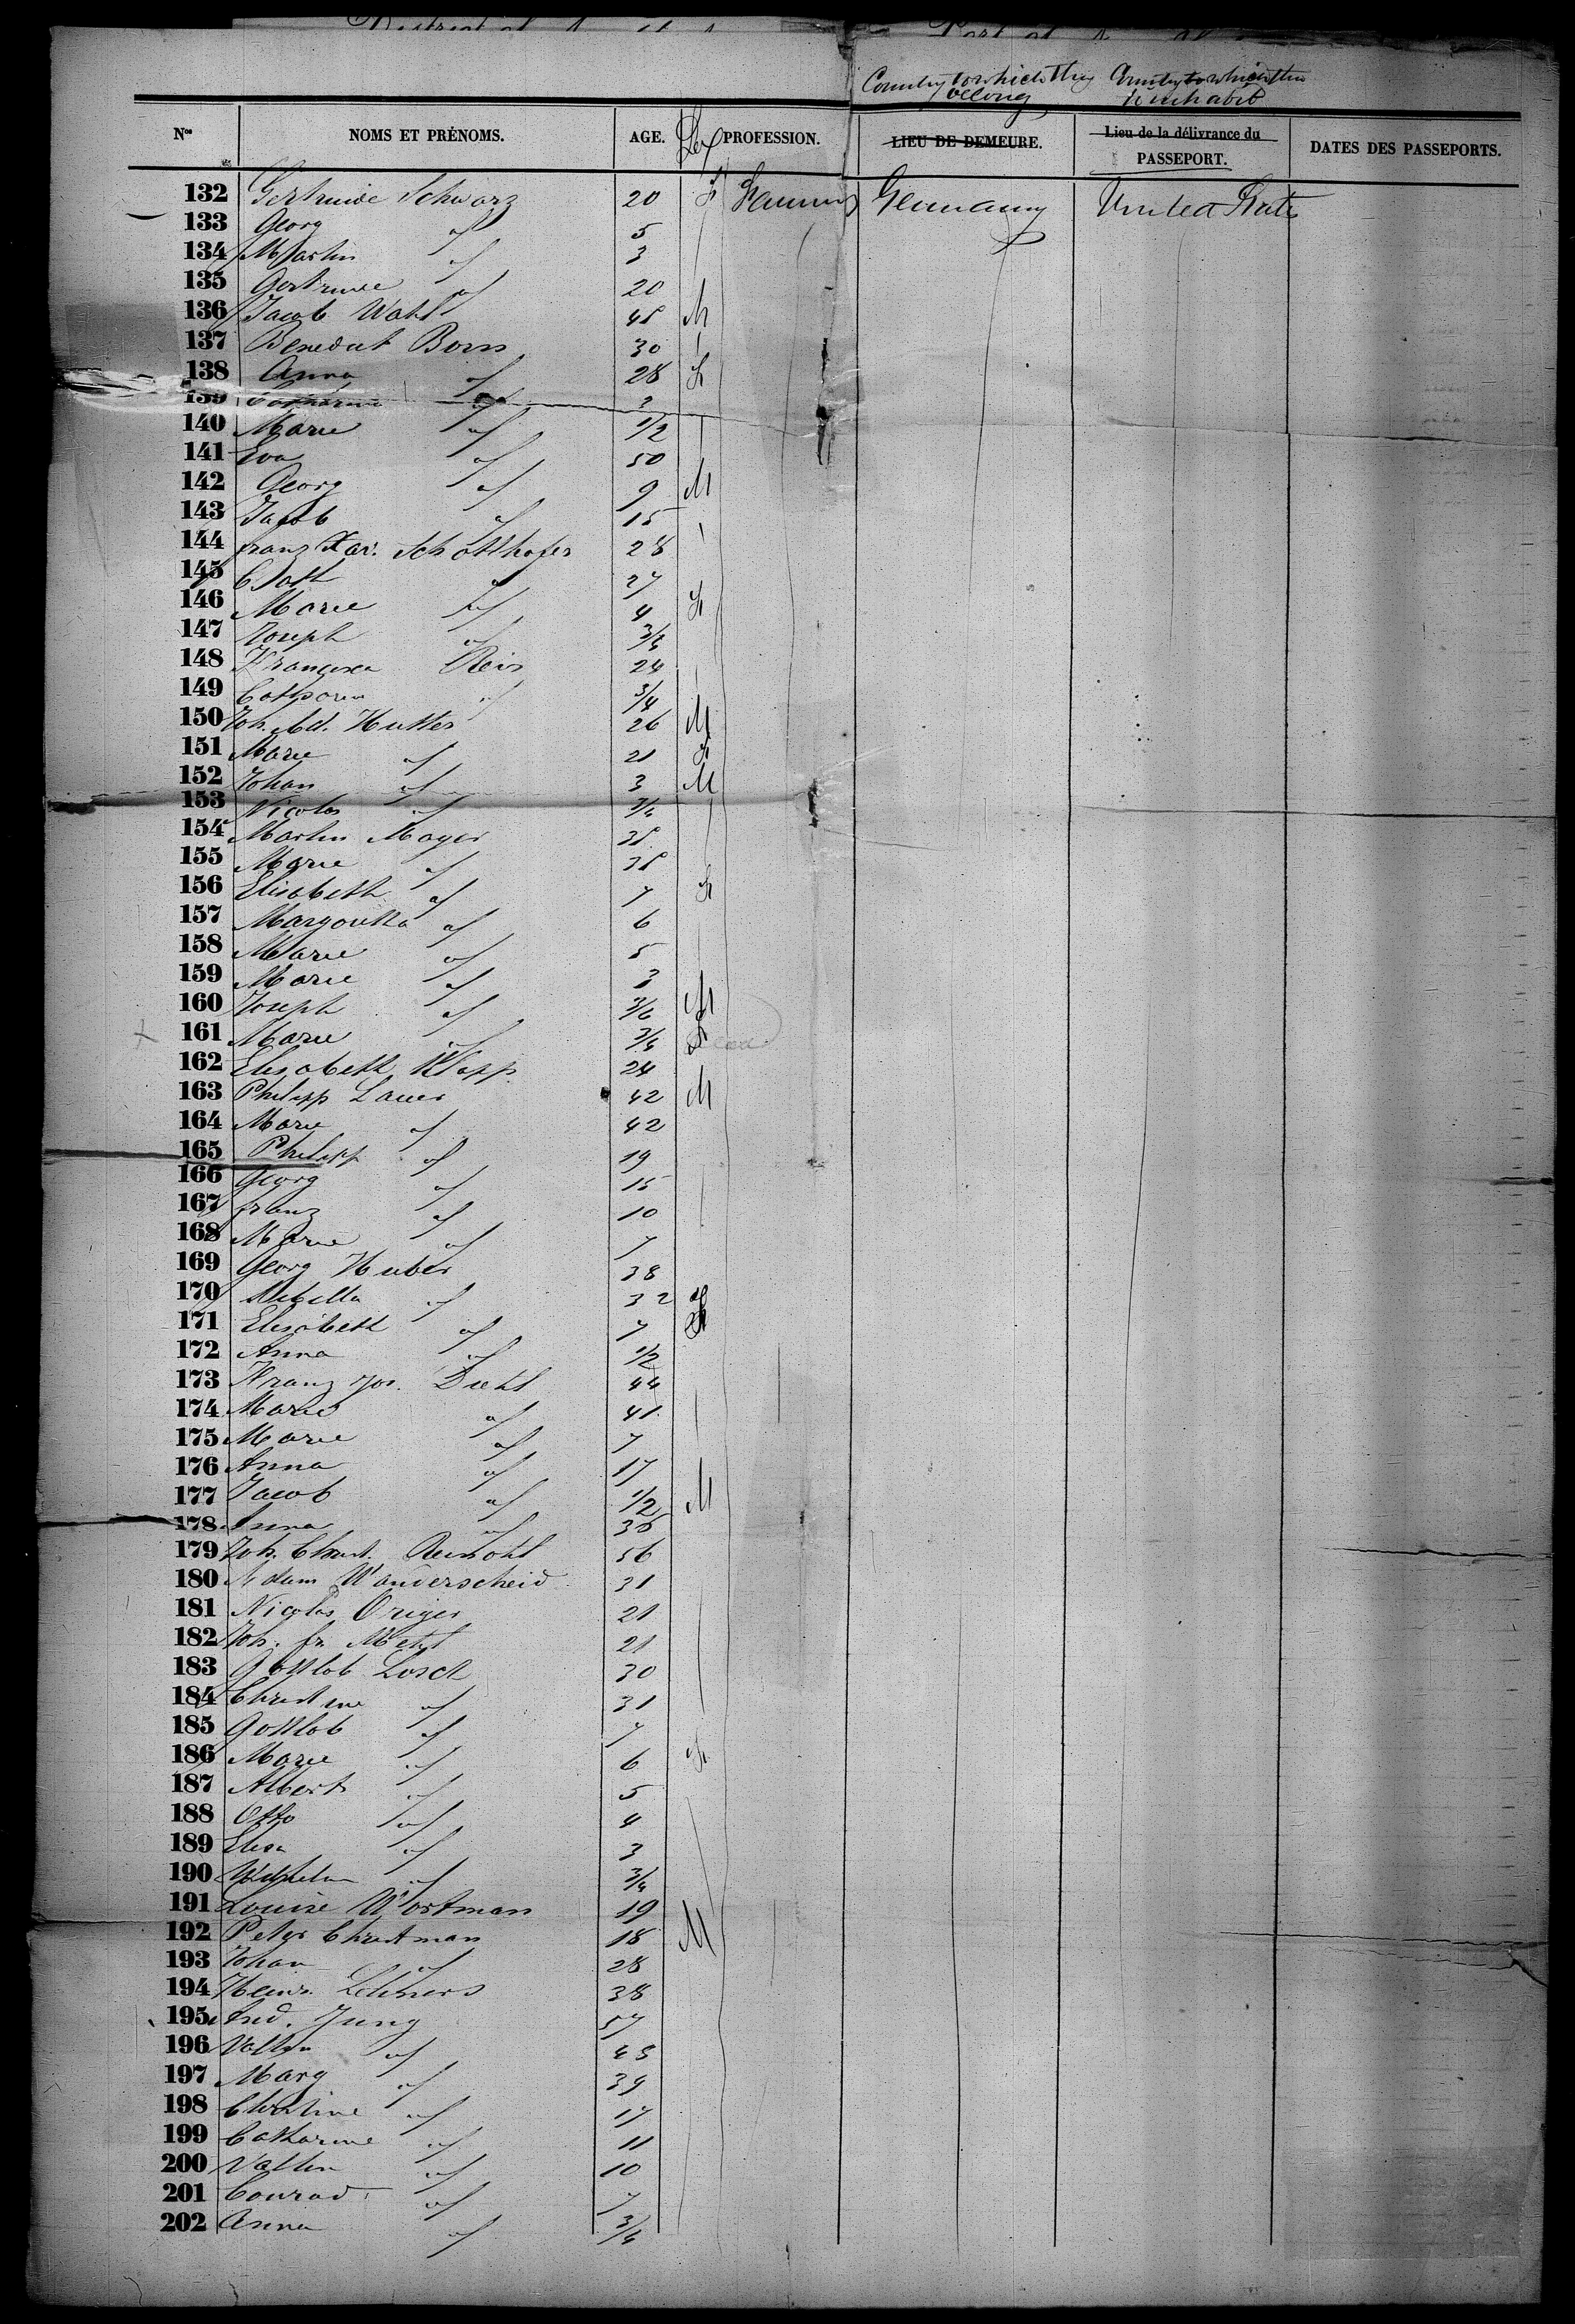 District of Port of
Country to which they belong Country to which they inhabit
Nos NOMS ET PRÉNOMS. AGE. Sex PROFESSION. LIEU DE DEMEURE. Lieu de la délivrance du PASSEPORT. DATES DES PASSEPORTS.
132 Gertruide Schwarz 20 F Germany United States
133 Georg " 5
134 Martin " 3
135 Gertrude " 20
136 Jacob Wahl 48 M
137 Benedict Borns 30
138 Anna " 28 F
139 Catharina " 3
140 Marie " 1/2
141 Eva " 50
142 Georg " 9 M
143 Jacob " 15
144 Franz Xav. Schotthofer 28
145 Cath " 27
146 Marie " 4 F
147 Joseph " 3/4
148 Francisca Reis 24
149 Catharin " 3/4
150 Joh. Ad. Hutter 26 M
151 Marie " 21 F
152 Johan " 3 M
153 Nicolas " 3/4
154 Martin Mayer 38
155 Marie " 38
156 Elisabeth " 7 F
157 Margaretha " 6
158 Marie " 5
159 Marie " 3
160 Joseph " 3/6 M
161 Marie " 3/4 F
162 Elisabeth Klapp 24
163 Philipp Lauer 42 M
164 Marie " 42
165 Philipp " 19
166 Georg " 15
167 Franz " 10
168 Marie " 7
169 Georg Huber 38
170 Sibilla " 32 F
171 Elisabeth " 7
172 Anna " 1/2
173 Franz Jos. Diehl 44
174 Marie " 41
175 Marie " 7
176 Anna " 17
177 Jacob " 1/2 M
178 Anna " 36
179 Joh. Christ. Reinohl 56
180 Adam Wanderscheid 31
181 Nicolas Origer 21
182 Joh. fr. 21
183 Gottlob Losch 30
184 Christine " 31
185 Gottlob " 7
186 Marie " 6 F
187 Albert " 5
188 Otto " 4
189 Elisa " 3
190 Wilhelm " 3/4
191 Louise Wortman 19
192 Peter Christman 18 M
193 Johan " 28
194 Heinr. Lehners 38
195 And. Jung 57
196 Valtin " 45
197 Marg " 39
198 Christine " 17
199 Catharine " 11
200 Valtin " 10
201 Conrad " 7
202 Anna " 3/4